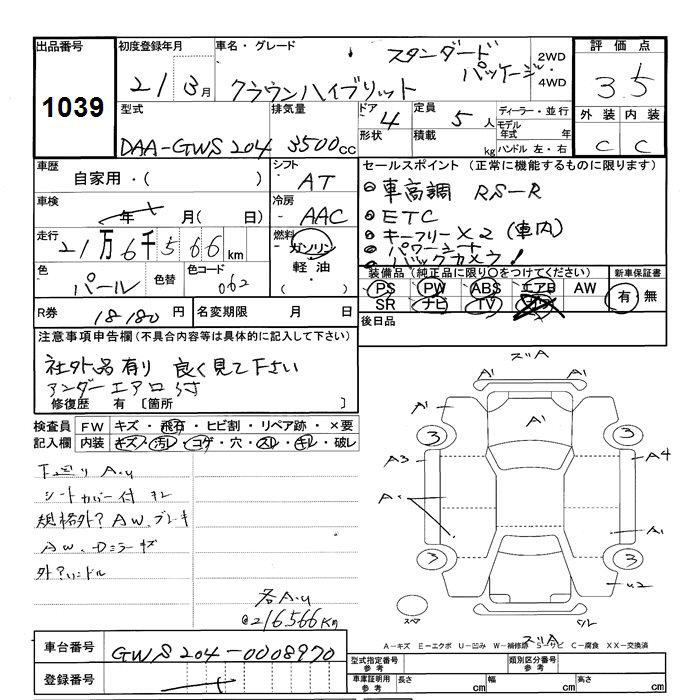 出品番号 初度登録年月 車名・グレード 評価点
1039
スタンダード
パッケージ
2WD
4WD
21 3月 クラウンハイブリット
3.5
型式 排気量 ドア 形状 定員 積載 ディーラー・並行 外装 内装
DAA-GWS204 3500cc 4 5人 kg
モデル年式 年
ハンドル 左・右
C C
車歴 自家用・( )
シフト AT
セールスポイント (正常に機能するものに限ります)
車高調 RS-R
ETC
キーフリー×2 (車内)
パワーシート
バックカメラ!
車検 年 月( 日)
冷房 AAC
走行 21万6千566km
燃料 ガソリン
軽油
( )
色 パール 色替 色コード 062
装備品 (純正品に限り○をつけてください) 新車保証書
PS PW ABS エアB AW 有・無
SR ナビ TV
R券 18180円 名変期限 月 日
後日品
注意事項申告欄 (不具合内容等は具体的に記入して下さい)
社外品有り 良く見て下さい
アンダーエアロ付
修復歴 有 [箇所 ]
検査員 FW キズ・飛石・ヒビ割・リペア跡・×要
記入欄 内装 キズ・汚レ・コゲ・穴・スレ・キレ・破レ
下廻り A.u
シートカバー付
規格外? AW.ブレーキ
AW.
外?ハンドル
各A.u
@216566Km
スソA
A1 A1
A1 A1
3 3
A3 A4
A A1
3 3
u2
スペア
スソA
A-キズ E-エクボ U-凹み W-補修跡 S-サビ C-腐食 XX-交換済
車台番号 GWS204-0008970
登録番号
型式指定番号 参考 類別区分番号 参考
車庫証明用 参考 長さ cm 幅 cm 高さ cm